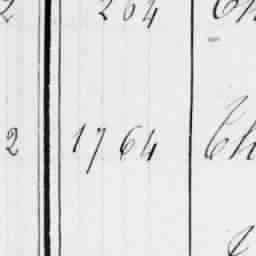 2 264 Ch
2 1764 Ch